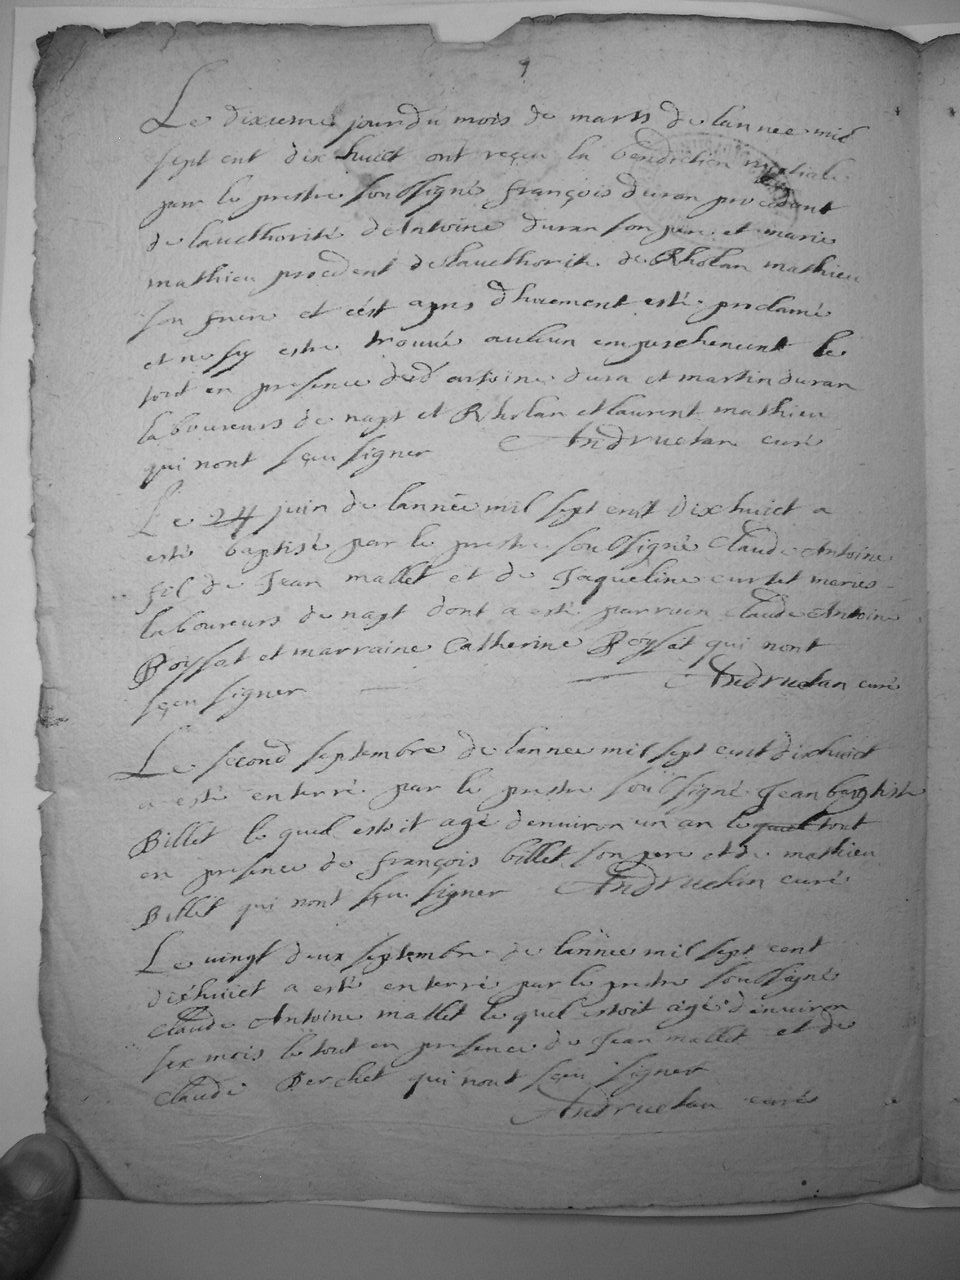 1
Le dixieme jour du mois de mars de lannee mil
sept cent dix huict ont reçeu la benediction nuptiale
par le prestre soubsigné françois duran procedant
de lauthorité de Antoine duran son pere et marie
mathieu procedent de lauthorite de Rholan mathieu
son frere et cést apres dhuement esté proclamé
et ne sy estre trouué auleun empeschement le
tout en presence dud antoine dura et martin duran
laboureurs de napt et Rholan et laurent mathieu
qui nont sçeu signer Andruetan curé
Le 24 juin de lannée mil sept cent dixhuict a
esté baptisé par le prestre soubsigné Claude Antoine
fil de Jean mallet et de Jaqueline curtet maries
laboureurs de napt dont a esté parrain Claude Antoine
Poysat et marraine Catherine Poysat qui nont
sçeu signer Andruetan curé
Le second septembre de lannee mil sept cent dixhuict
a esté enterré par le prestre soubsigné Jean baptiste
Billet le quel estoit agé denuiron un an le quel tout
en presence de françois billet son pere et de mathieu
Billet qui nont sçeu signer Andruetan curé
Le vingt deux septembre de lannee mil sept cent
dixhuict a esté enterré par le prestre soubsigné
Claude Antoine mallet le quel estoit agé denuiron
six mois le tout en presence de Jean mallet et de
Claude Berchet qui nont sçeu signer
Andruetan curé